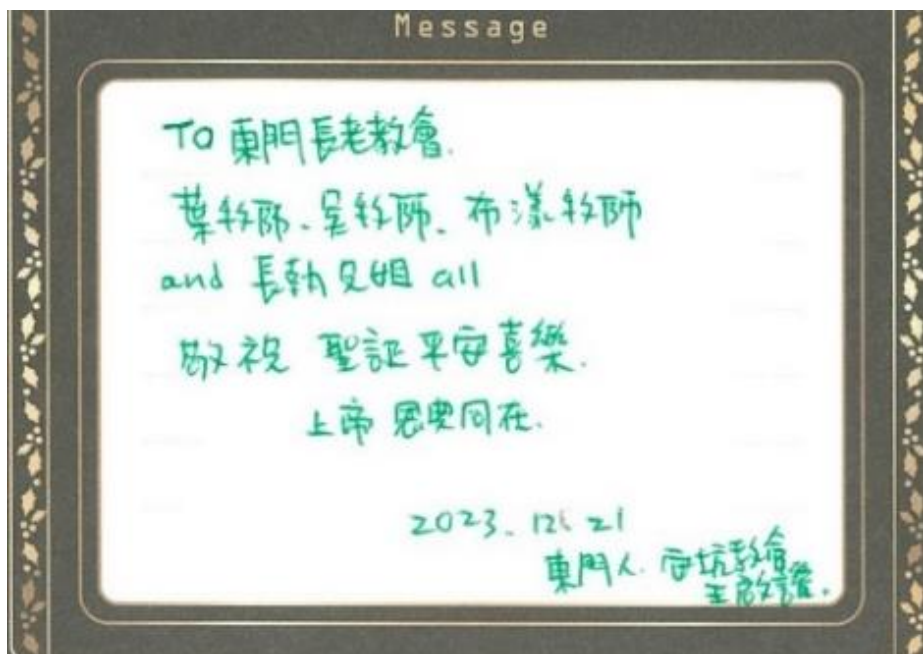 Message
TO 東門長老教會.
葉牧師、吳牧師、布漾牧師
and 長執兄姐 all
敬祝 聖誕平安喜樂.
上帝 恩典同在.
2023. 12. 21
東門人. 安坑教會
王啟